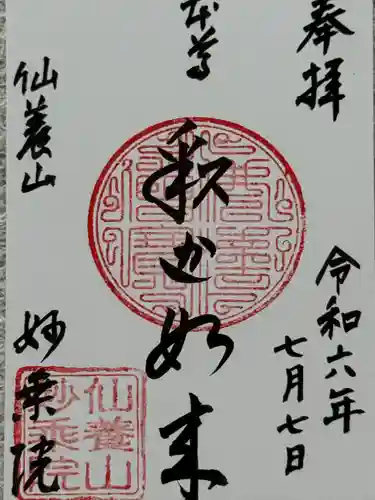 奉拝
令和六年
七月七日
本尊
釈迦如来
仙養山
妙乗院
仙養山
妙乗院